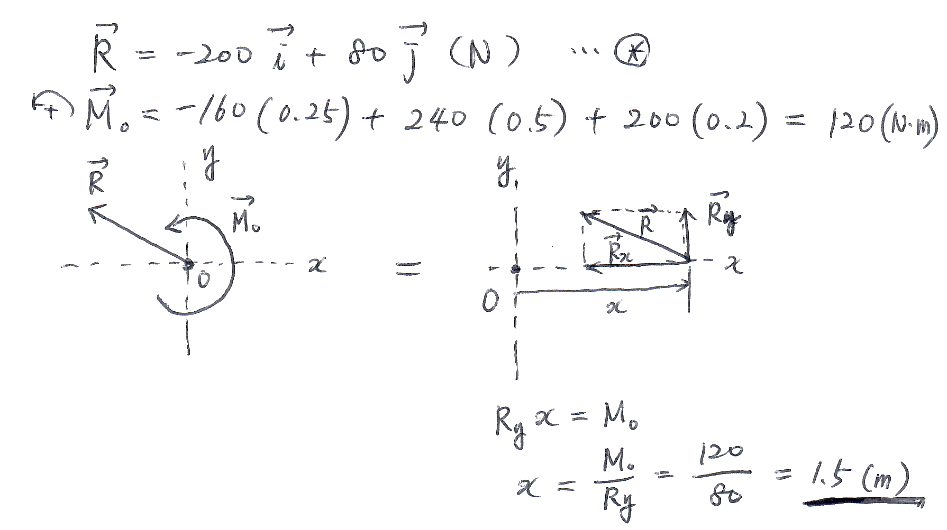 R⃗ = -200 i⃗ + 80 j⃗ (N) ... ⊛
(+) M⃗₀ = -160 (0.25) + 240 (0.5) + 200 (0.2) = 120 (N·m)
y
R⃗
M⃗₀
O
x
=
y
R⃗y
R⃗
R⃗x
x
O
x
Ry x = M₀
x = M₀/Ry = 120/80 = 1.5 (m)